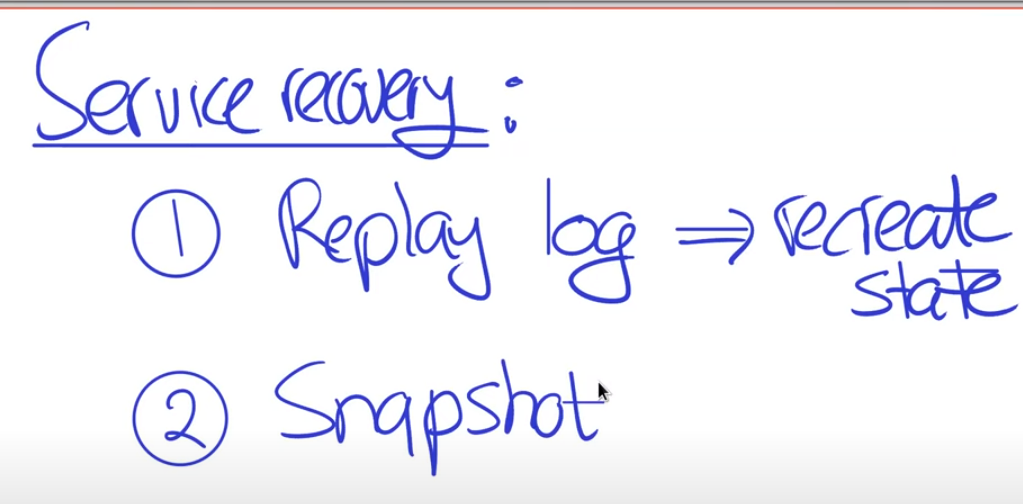 Service recovery:
① Replay log ⇒ recreate
state
② Snapshot